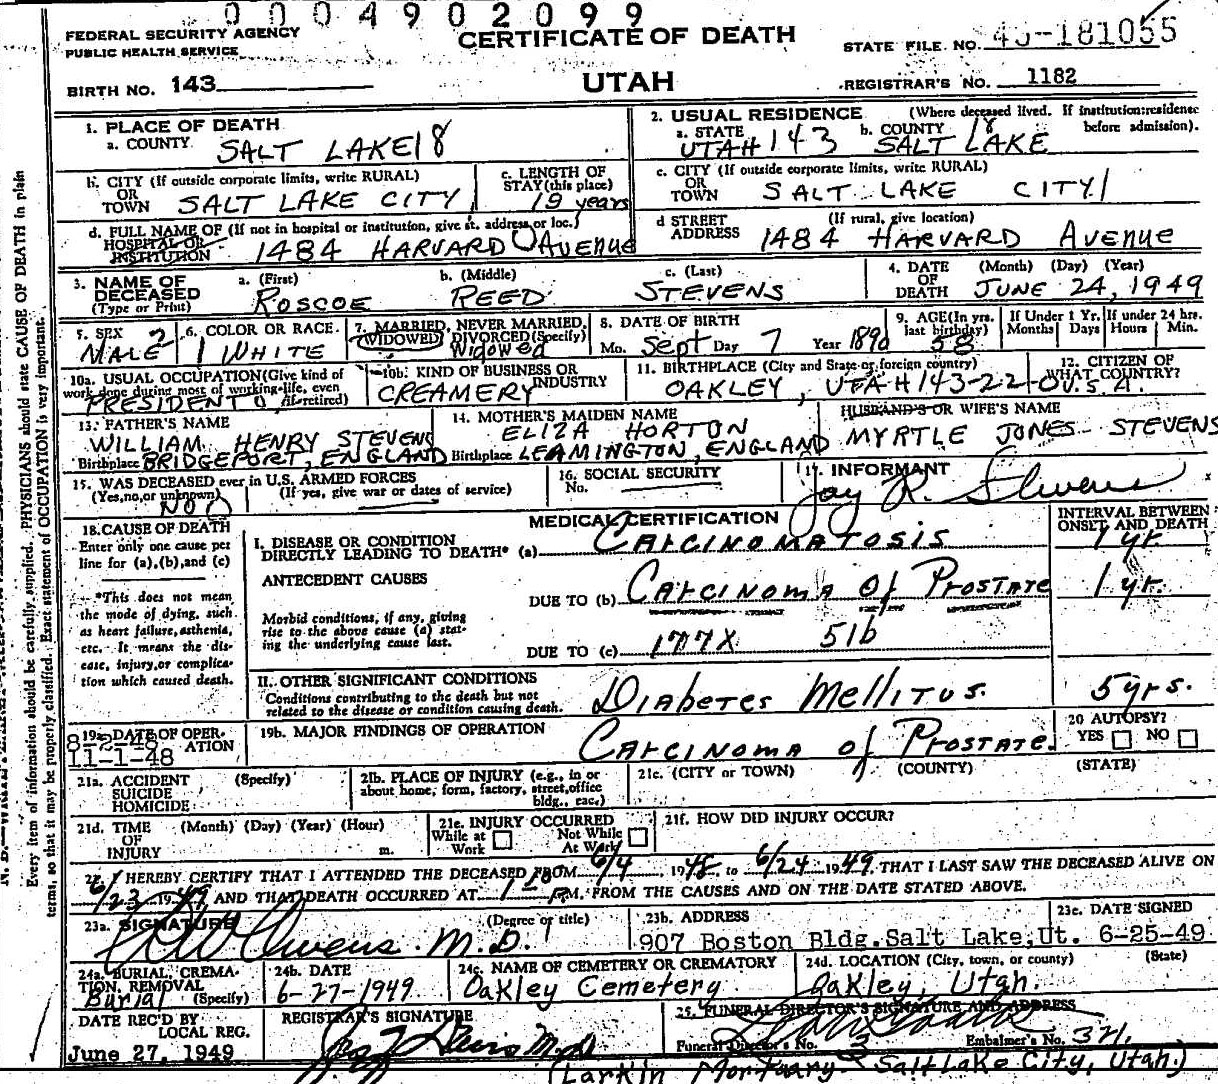 0004902099
FEDERAL SECURITY AGENCY
PUBLIC HEALTH SERVICE
CERTIFICATE OF DEATH
STATE FILE NO. 49-181055
BIRTH NO. 143
UTAH
REGISTRAR'S NO. 1182
1. PLACE OF DEATH
a. COUNTY SALT LAKE 18
2. USUAL RESIDENCE (Where deceased lived. If institution: residence before admission).
a. STATE UTAH 143 b. COUNTY 18 SALT LAKE
b. CITY (If outside corporate limits, write RURAL) OR TOWN SALT LAKE CITY 1
c. LENGTH OF STAY (this place) 19 years
c. CITY (If outside corporate limits, write RURAL) OR TOWN SALT LAKE CITY 1
d. FULL NAME OF (If not in hospital or institution, give st. address or loc.) HOSPITAL OR INSTITUTION 1484 HARVARD AVENUE
d STREET ADDRESS (If rural, give location) 1484 HARVARD AVENUE
3. NAME OF DECEASED (Type or Print) a. (First) ROSCOE b. (Middle) REED c. (Last) STEVENS
4. DATE OF DEATH (Month) (Day) (Year) JUNE 24, 1949
5. SEX 2 MALE
6. COLOR OR RACE 1 WHITE
7. MARRIED, NEVER MARRIED, WIDOWED, DIVORCED (Specify) Widowed
8. DATE OF BIRTH Mo. Sept Day 7 Year 1890
9. AGE (In yrs. last birthday) 58
If Under 1 Yr. Months Days
If under 24 hrs. Hours Min.
10a. USUAL OCCUPATION (Give kind of work done during most of working life, even if retired) PRESIDENT
10b. KIND OF BUSINESS OR INDUSTRY CREAMERY
11. BIRTHPLACE (City and State or foreign country) OAKLEY, UTAH 143-22-0
12. CITIZEN OF WHAT COUNTRY? U.S.A.
13. FATHER'S NAME WILLIAM HENRY STEVENS
Birthplace BRIDGEPORT, ENGLAND
14. MOTHER'S MAIDEN NAME ELIZA HORTON
Birthplace LEAMINGTON, ENGLAND
HUSBAND'S OR WIFE'S NAME
MYRTLE JONES STEVENS
15. WAS DECEASED ever in U.S. ARMED FORCES
(Yes, no, or unknown) (If yes, give war or dates of service)
NO
16. SOCIAL SECURITY No.
17. INFORMANT
Jay R. Stevens
18. CAUSE OF DEATH
Enter only one cause per line for (a), (b), and (c)
*This does not mean the mode of dying, such as heart failure, asthenia, etc. It means the disease, injury, or complication which caused death.
MEDICAL CERTIFICATION
INTERVAL BETWEEN ONSET AND DEATH
I. DISEASE OR CONDITION DIRECTLY LEADING TO DEATH* (a) CARCINOMATOSIS 1 yr
ANTECEDENT CAUSES
DUE TO (b) CARCINOMA OF PROSTATE 1 yr.
Morbid conditions, if any, giving rise to the above cause (a) stating the underlying cause last.
DUE TO (c) 177X 51b
II. OTHER SIGNIFICANT CONDITIONS
Conditions contributing to the death but not related to the disease or condition causing death.
DIABETES MELLITUS. 5 yrs.
19a. DATE OF OPERATION
11-1-48
19b. MAJOR FINDINGS OF OPERATION
CARCINOMA OF PROSTATE.
20 AUTOPSY?
YES NO
21a. ACCIDENT SUICIDE HOMICIDE (Specify)
21b. PLACE OF INJURY (e.g., in or about home, form, factory, street, office bldg., eac.)
21c. (CITY or TOWN) (COUNTY) (STATE)
21d. TIME OF INJURY (Month) (Day) (Year) (Hour) m.
21e. INJURY OCCURRED
While at Work Not While At Work
21f. HOW DID INJURY OCCUR?
22. I HEREBY CERTIFY THAT I ATTENDED THE DECEASED FROM 6/4 1948 to 6/24 1949, THAT I LAST SAW THE DECEASED ALIVE ON
6/23 1949, AND THAT DEATH OCCURRED AT P.M. FROM THE CAUSES AND ON THE DATE STATED ABOVE.
23a. SIGNATURE (Degree or title)
Owens M.D.
23b. ADDRESS
907 Boston Bldg. Salt Lake, Ut.
23c. DATE SIGNED
6-25-49
24a. BURIAL, CREMATION, REMOVAL (Specify) Burial
24b. DATE
6-27-1949
24c. NAME OF CEMETERY OR CREMATORY
Oakley Cemetery
24d. LOCATION (City, town, or county) (State)
Oakley, Utah.
DATE REC'D BY LOCAL REG.
June 27, 1949
REGISTRAR'S SIGNATURE
M.D.
25. FUNERAL DIRECTOR'S SIGNATURE AND ADDRESS
Funeral Director's No. Embalmer's No. 321
(Larkin Mortuary Salt Lake City, Utah.)
Every item of information should be carefully supplied. PHYSICIANS should state CAUSE OF DEATH in plain
terms, so that it may be properly classified. Exact statement of OCCUPATION is very important.